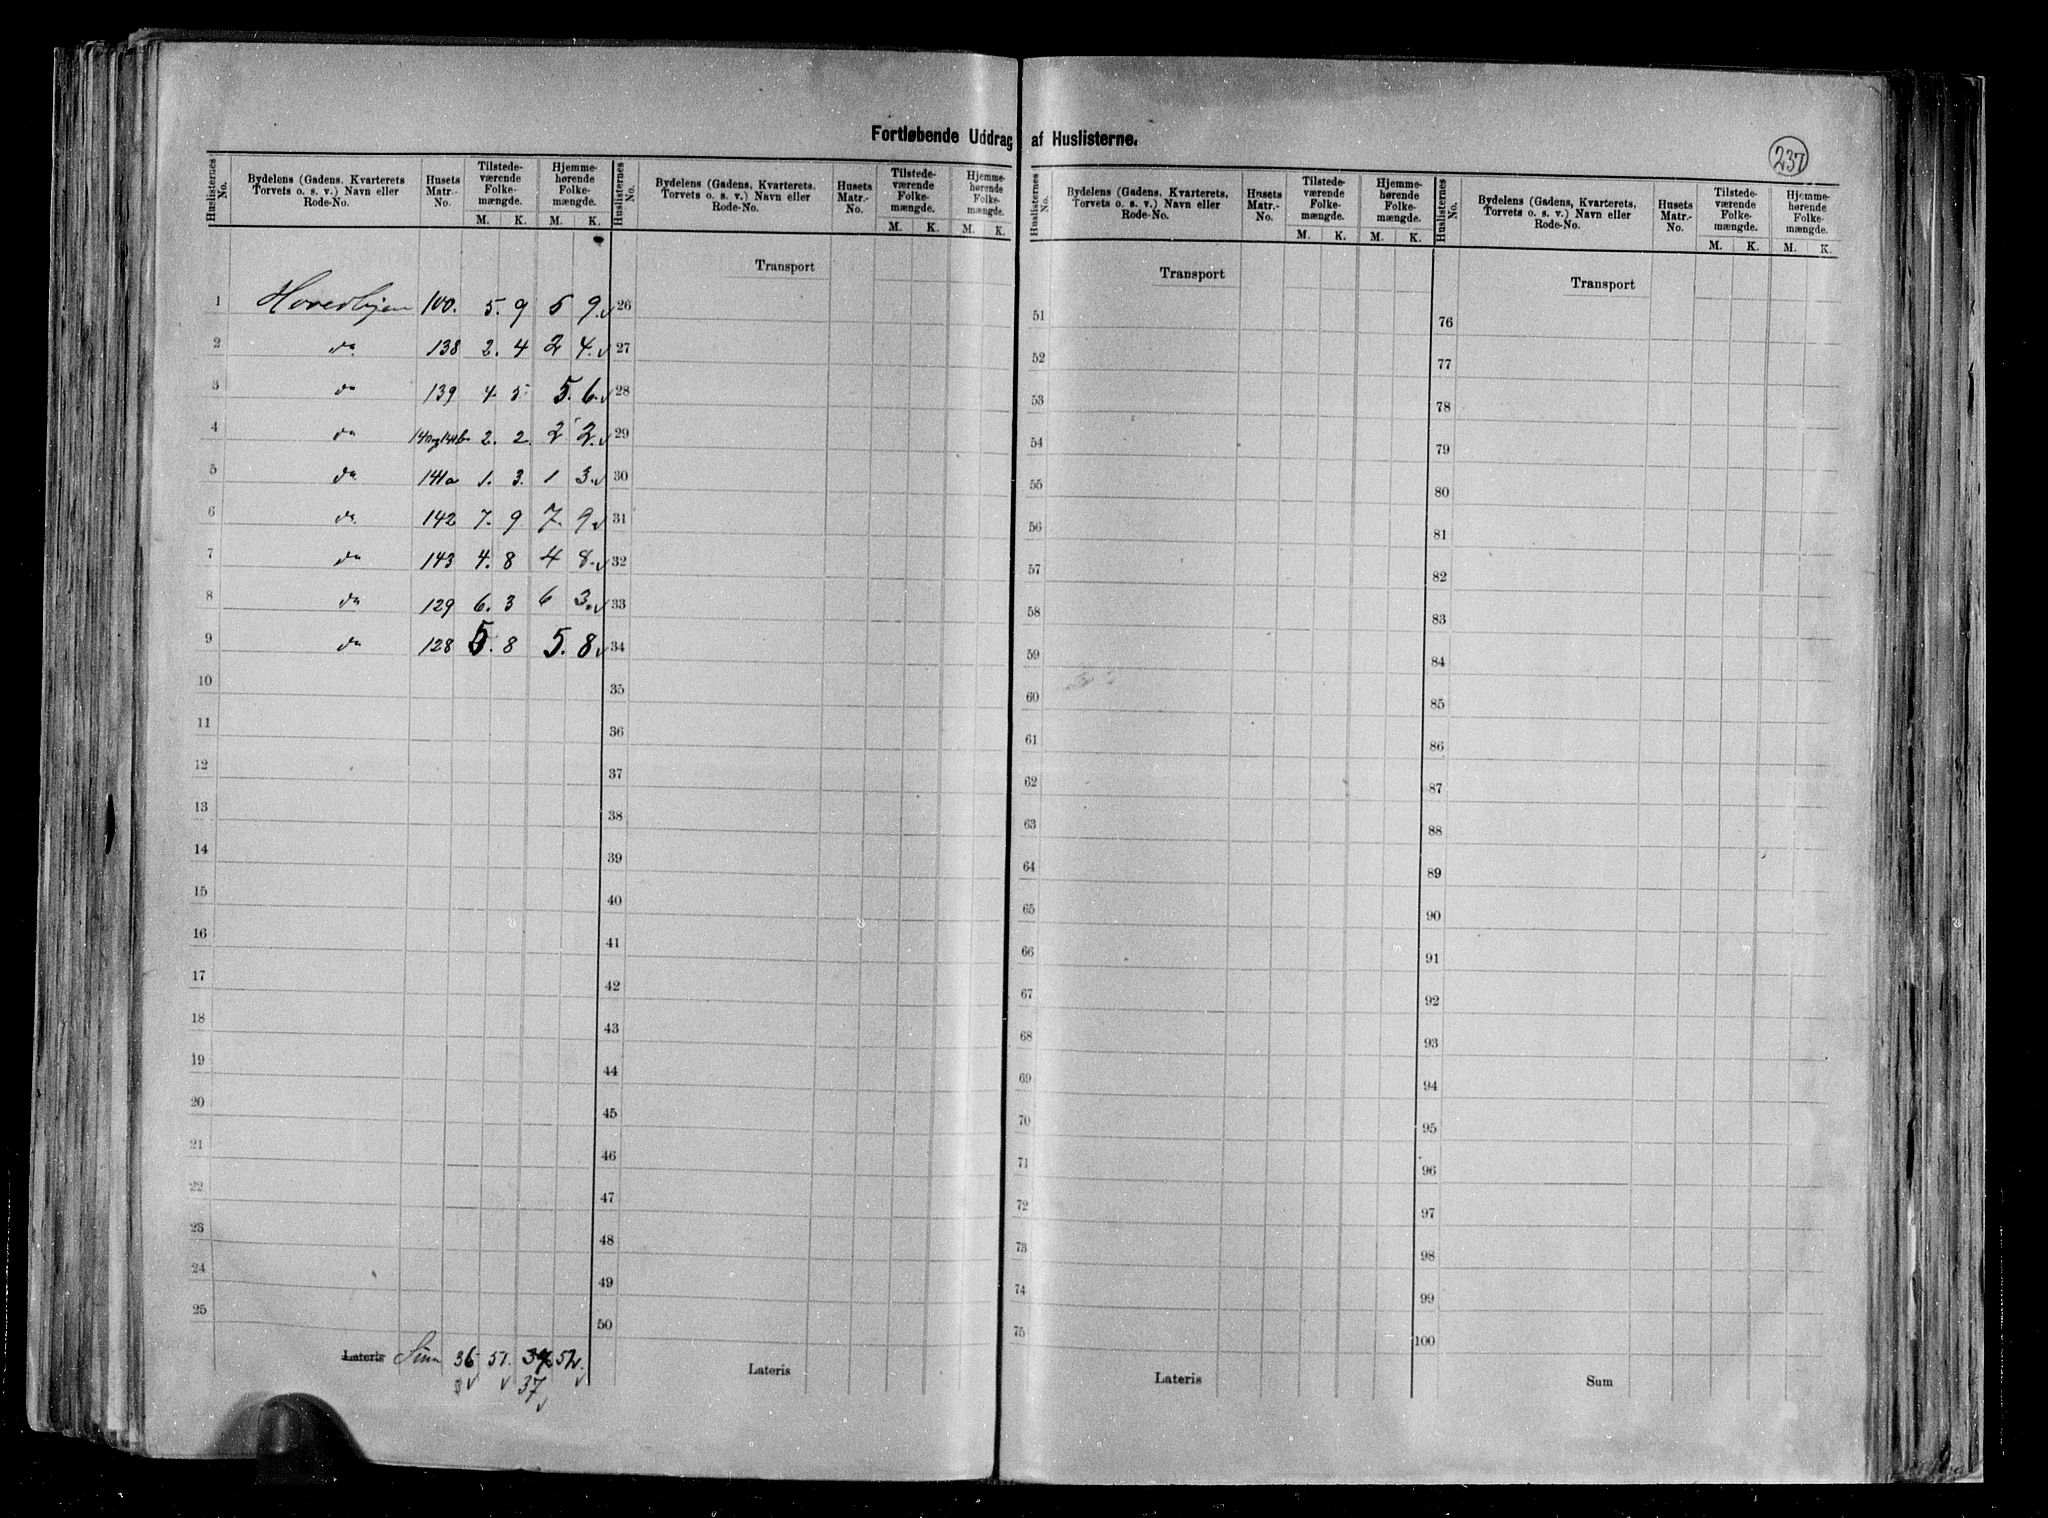 Fortløbende Uddrag af Huslisterne.
237
Huslisternes No. | Bydelens (Gadens, Kvarterets Torvets o. s. v.) Navn eller Rode-No. | Husets Matr.-No. | Tilstede-værende Folke-mængde. M. K. | Hjemme-hørende Folke-mængde. M. K.
1 Hovedbyen 100. 5. 9 5 9.
2 do 138 2. 4 2 4.
3 do 139 4. 5 5. 6.
4 do 2. 2. 2 2.
5 do 141a 1. 3. 1 3.
6 do 142 7. 9. 7. 9
7 do 143 4. 8 4 8.
8 do 129 6. 3 6 3.
9 do 128 5. 8 5. 8
10
11
12
13
14
15
16
17
18
19
20
21
22
23
24
25
Lateris Sum 36 51. 52
37
Huslisternes No. | Bydelens (Gadens, Kvarterets, Torvets o. s. v.) Navn eller Rode-No. | Husets Matr.-No. | Tilstede-værende Folke-mængde. M. K. | Hjemme-hørende Folke-mængde. M. K.
Transport
26
27
28
29
30
31
32
33
34
35
36
37
38
39
40
41
42
43
44
45
46
47
48
49
50
Lateris
Huslisternes No. | Bydelens (Gadens, Kvarterets, Torvets o. s. v.) Navn eller Rode-No. | Husets Matr.-No. | Tilstede-værende Folke-mængde. M. K. | Hjemme-hørende Folke-mængde. M. K.
Transport
51
52
53
54
55
56
57
58
59
60
61
62
63
64
65
66
67
68
69
70
71
72
73
74
75
Lateris
Huslisternes No. | Bydelens (Gadens, Kvarterets, Torvets o. s. v.) Navn eller Rode-No. | Husets Matr.-No. | Tilstede-værende Folke-mængde. M. K. | Hjemme-hørende Folke-mængde. M. K.
Transport
76
77
78
79
80
81
82
83
84
85
86
87
88
89
90
91
92
93
94
95
96
97
98
99
100
Sum